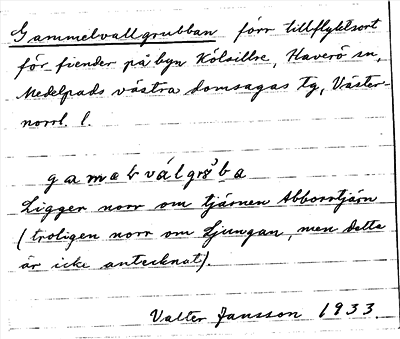 Gammelvallgrubban förr tillflyktsort
för fiender på byn Kölsillre, Haverö sn,
Medelpads västra domsagas tg, Väster-
norrl. l.
Ligger norr om tjärnen Abborrtjärn
(troligen norr om Ljungan, men detta
är icke antecknat).
Valter Jansson 1933.